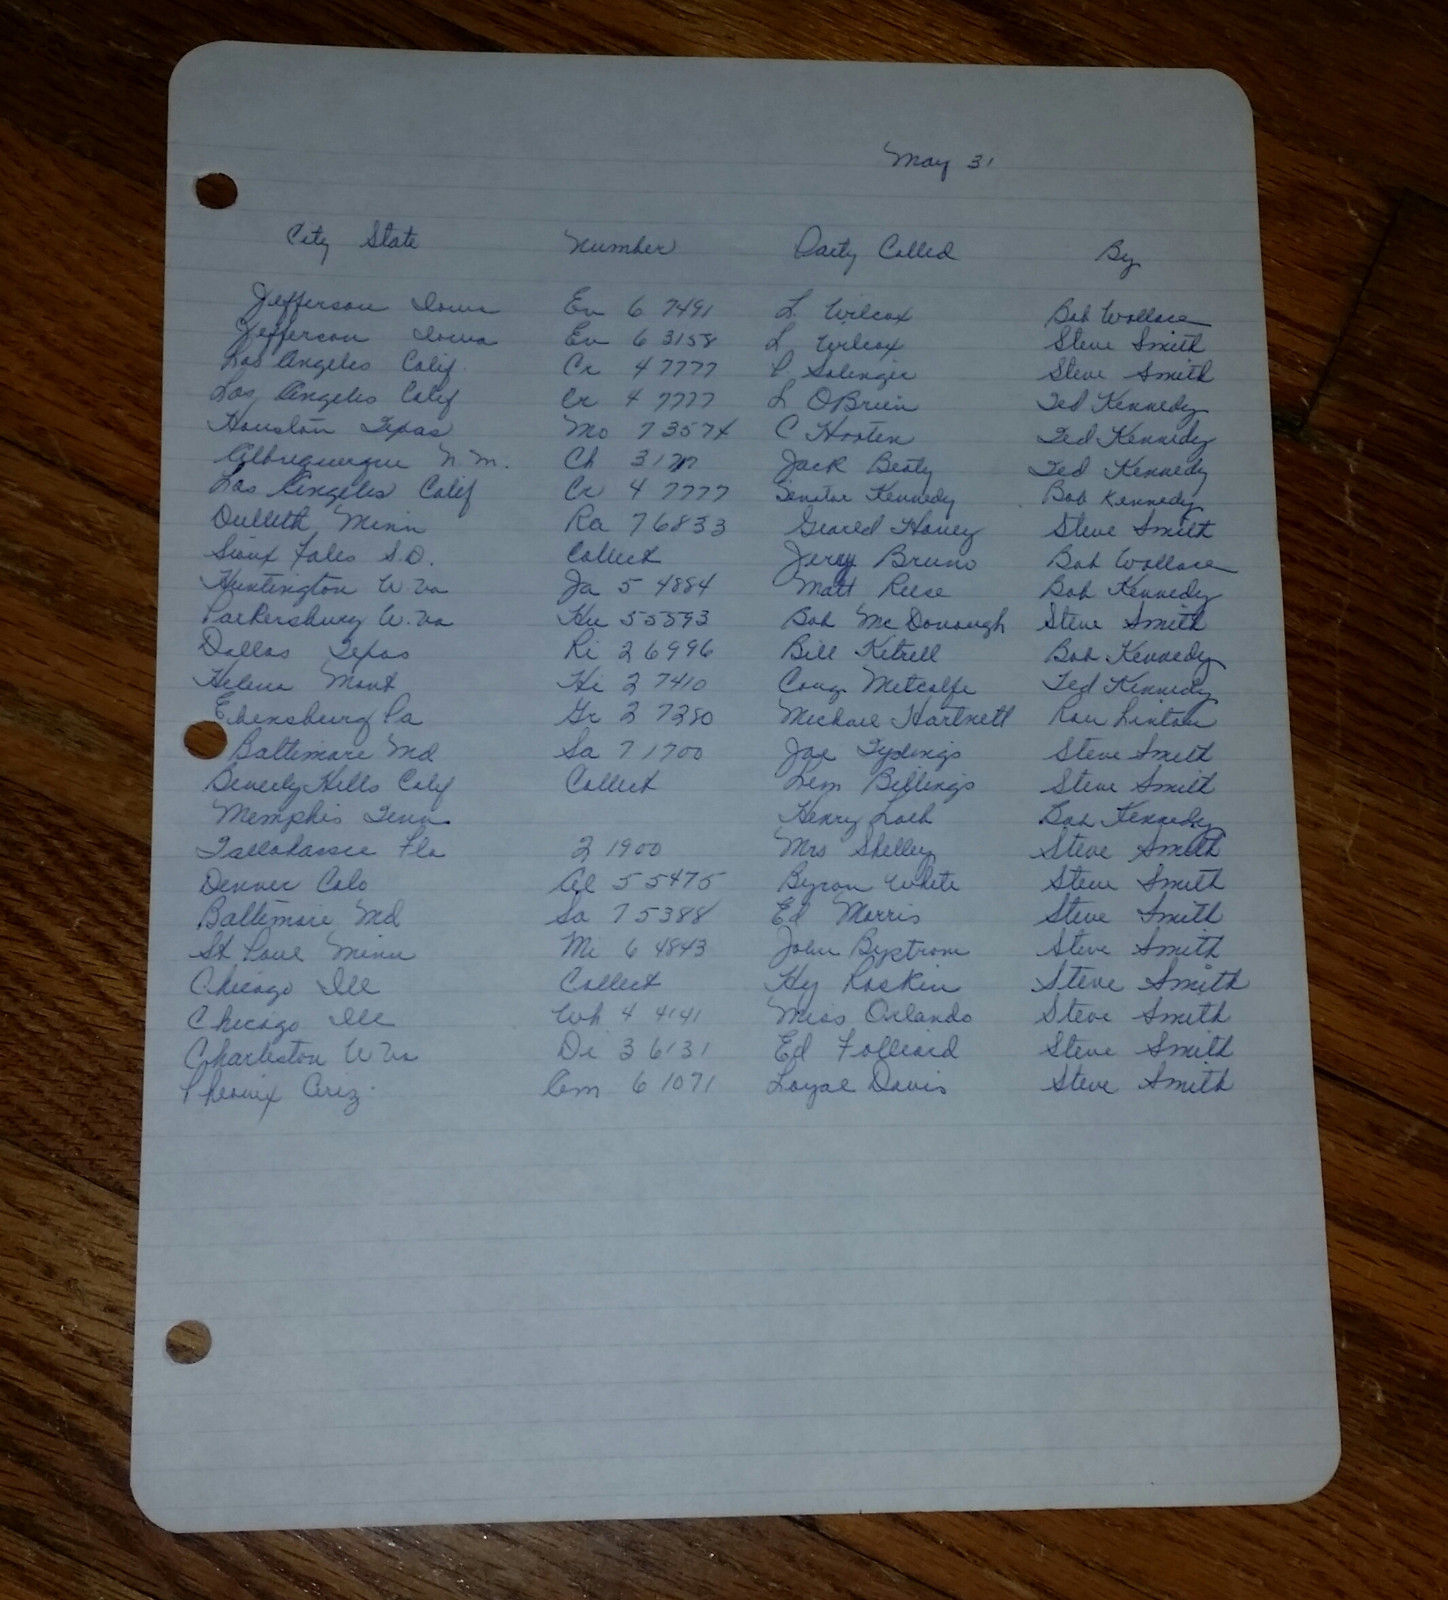 May 31
City State Number Party Called By
Jefferson Iowa Ev 6 7491 L. Wilcox Bob Wallace
Jefferson Iowa Ev 6 3158 L. Wilcox Steve Smith
Los Angeles Calif. Cr 4 7777 P. Salinger Steve Smith
Los Angeles Calif Cr 4 7777 L OBrien Ted Kennedy
Houston Texas Mo 7 3574 C Hooten Ted Kennedy
Albuquerque N.M. Ch Jack Beaty Ted Kennedy
Los Angeles Calif Cr 4 7777 Senator Kennedy Bob Kennedy
Dulleth Minn Ra 7 6833 Bob Steve Smith
Sioux Falls S.D. Collect Jerry Bruno Bob Wallace
Huntington W Va Ja 5 4884 Matt Reese Bob Kennedy
Parkersburg W. Va Hu 5 5593 Bob McDonough Steve Smith
Dallas Texas Ri 2 6996 Bill Kitrell Bob Kennedy
Helena Mont Hi 2 7410 Cong. Metcalfe Ted Kennedy
Ebensburg Pa Gr 2 7280 Michael Hartnett Ron Linton
Baltimore Md Sa 7 1700 Joe Tydings Steve Smith
Beverly Hills Calif Collect Lem Billings Steve Smith
Memphis Tenn. Henry Loeb Bob Kennedy
Tallahassee Fla 2 1900 Mrs Shelley Steve Smith
Denver Colo 5 5475 Byron White Steve Smith
Baltimore Md Sa 7 5388 Ed Morris Steve Smith
St Paul Minn Mi 6 4843 John Bystrom Steve Smith
Chicago Ill Collect Hy Raskin Steve Smith
Chicago Ill Wh 4 4141 Miss Orlando Steve Smith
Charleston W Va Di 3 6131 Ed Folliard Steve Smith
Phoenix Ariz. 6 1071 Loyal Davis Steve Smith